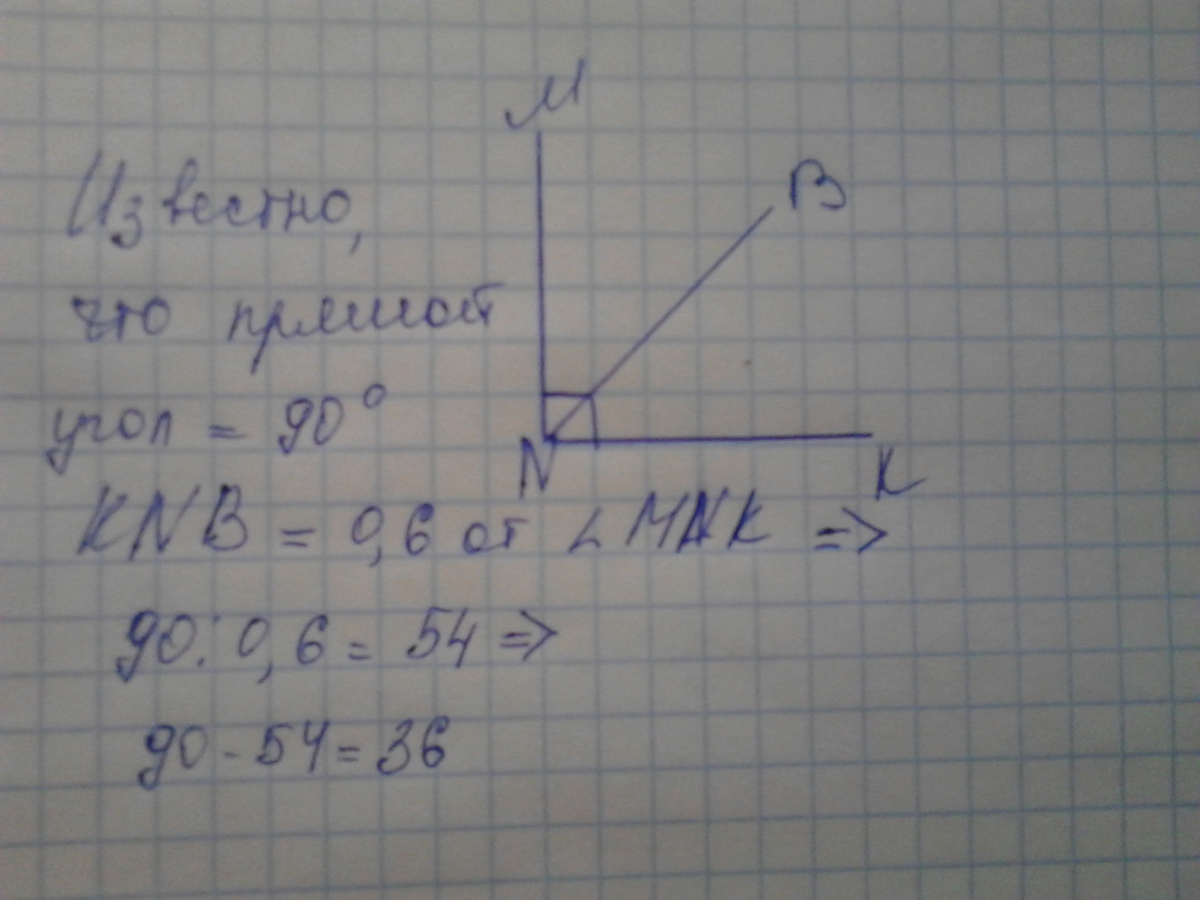 M
B
Известно,
что прямой
угол = 90°
N
K
KNB = 0,6 от ∠ MNK =>
90 : 0,6 = 54 =>
90 - 54 = 36